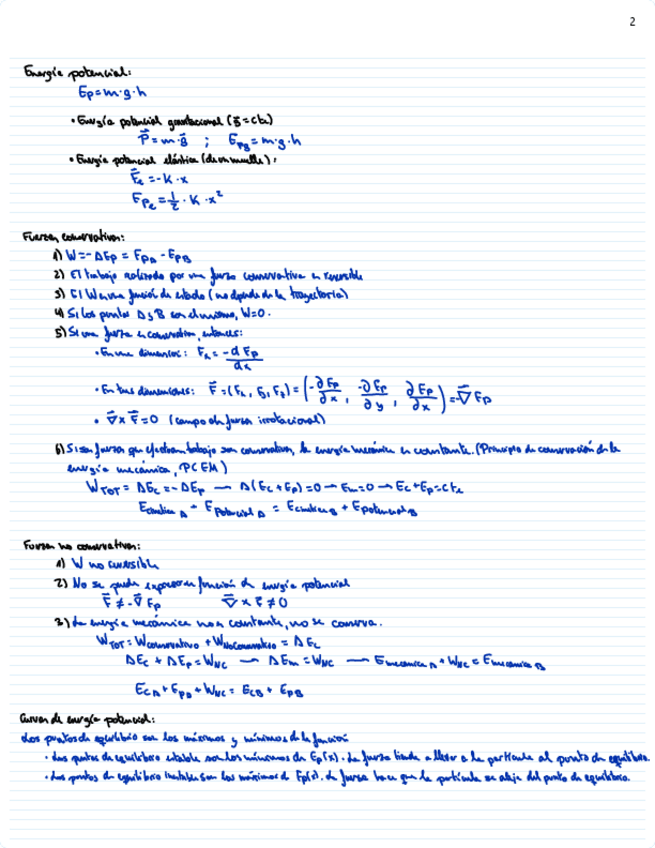 2
Energía potencial:
Ep=m·g·h
• Energía potencial gravitacional (g⃗=cte)
P⃗ = m·g⃗ ; Epg = m·g·h
• Energía potencial elástica (de un muelle):
F⃗e = -K·x
Epe = 1/2 · K · x²
Fuerzas conservativas:
1) W=-ΔEp = EpA - EpB
2) El trabajo realizado por una fuerza conservativa es reversible
3) El W es una función de estado (no depende de la trayectoria)
4) Si los puntos A y B son el mismo, W=0.
5) Si una fuerza es conservativa, entonces:
• En una dimensión: Fx = -dEp/dx
• En tres dimensiones: F⃗ = (Fx, Fy, Fz) = (-∂Ep/∂x, -∂Ep/∂y, ∂Ep/∂x) = -∇⃗Ep
• ∇⃗ x F⃗ = 0 (campo de fuerza irrotacional)
6) Si las fuerzas que efectúan trabajo son conservativas, la energía mecánica es constante. (Principio de conservación de la
energía mecánica, PCEM)
WTOT = ΔEc = -ΔEp → Δ(Ec+Ep)=0 → Em=0 → Ec+Ep=cte
Ecinética A + EPotencial A = Ecinética B + Epotencial B
Fuerzas no conservativas:
1) W no reversible
2) No se puede expresar en función de energía potencial
F⃗ ≠ -∇⃗Ep ∇⃗ x F⃗ ≠ 0
3) La energía mecánica no es constante, no se conserva.
WTOT = Wconservativo + WNoConservativo = ΔEc
ΔEc + ΔEp = WNC → ΔEm = WNC → Emecánica A + WNC = Emecánica B
EcA + EpA + WNC = EcB + EpB
Curvas de energía potencial:
Los puntos de equilibrio son los máximos y mínimos de la función
• Los puntos de equilibrio estable son los mínimos de Ep(x). La fuerza tiende a llevar a la partícula al punto de equilibrio.
• Los puntos de equilibrio inestable son los máximos de Ep(x). La fuerza hace que la partícula se aleje del punto de equilibrio.